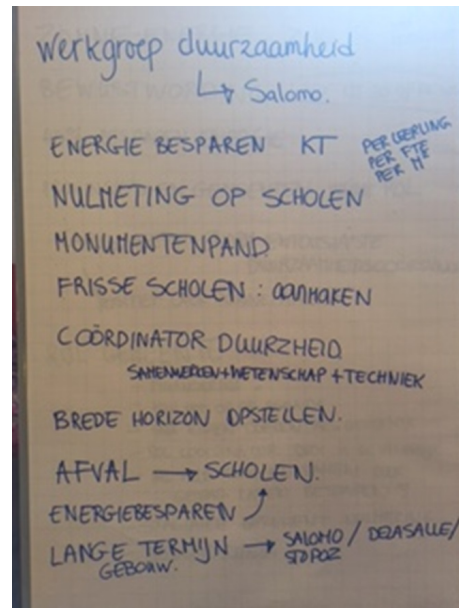 werkgroep duurzaamheid
↳ Salomo.
ENERGIE BESPAREN KT
PER LEERLING
PER FTE
PER M
NULMETING OP SCHOLEN
MONUMENTENPAND
FRISSE SCHOLEN : aanhaken
COÖRDINATOR DUURZHEID
SAMENWERKEN + WETENSCHAP + TECHNIEK
BREDE HORIZON OPSTELLEN.
AFVAL → SCHOLEN.
ENERGIEBESPAREN
LANGE TERMIJN → SALOMO / DELASALLE /
GEBOUW. STOPOZ